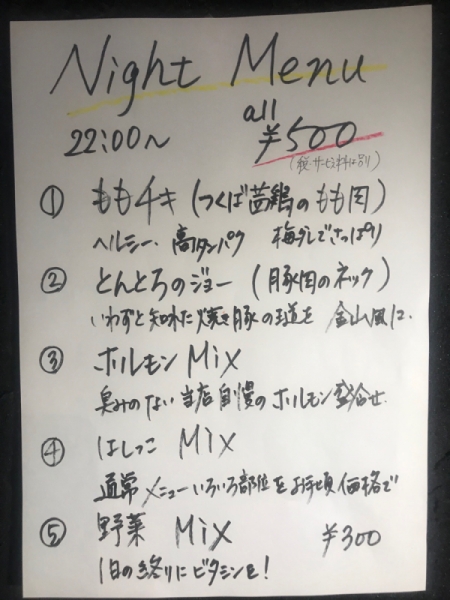 Night Menu
22:00〜
all ¥500
(税・サービス料は別)
① ももチキ (つくば茜鶏のもも肉)
ヘルシー、高タンパク 梅ダレでさっぱり
② とんとろのジョー (豚肉のネック)
いわずと知れた焼き豚の王道を 金山風に。
③ ホルモン MIX
臭みのない当店自慢のホルモン盛合せ
④ はしっこ MIX
通常メニューいろいろ部位をお手頃価格で
⑤ 野菜 MIX ¥300
1日の終りにビタミンを!